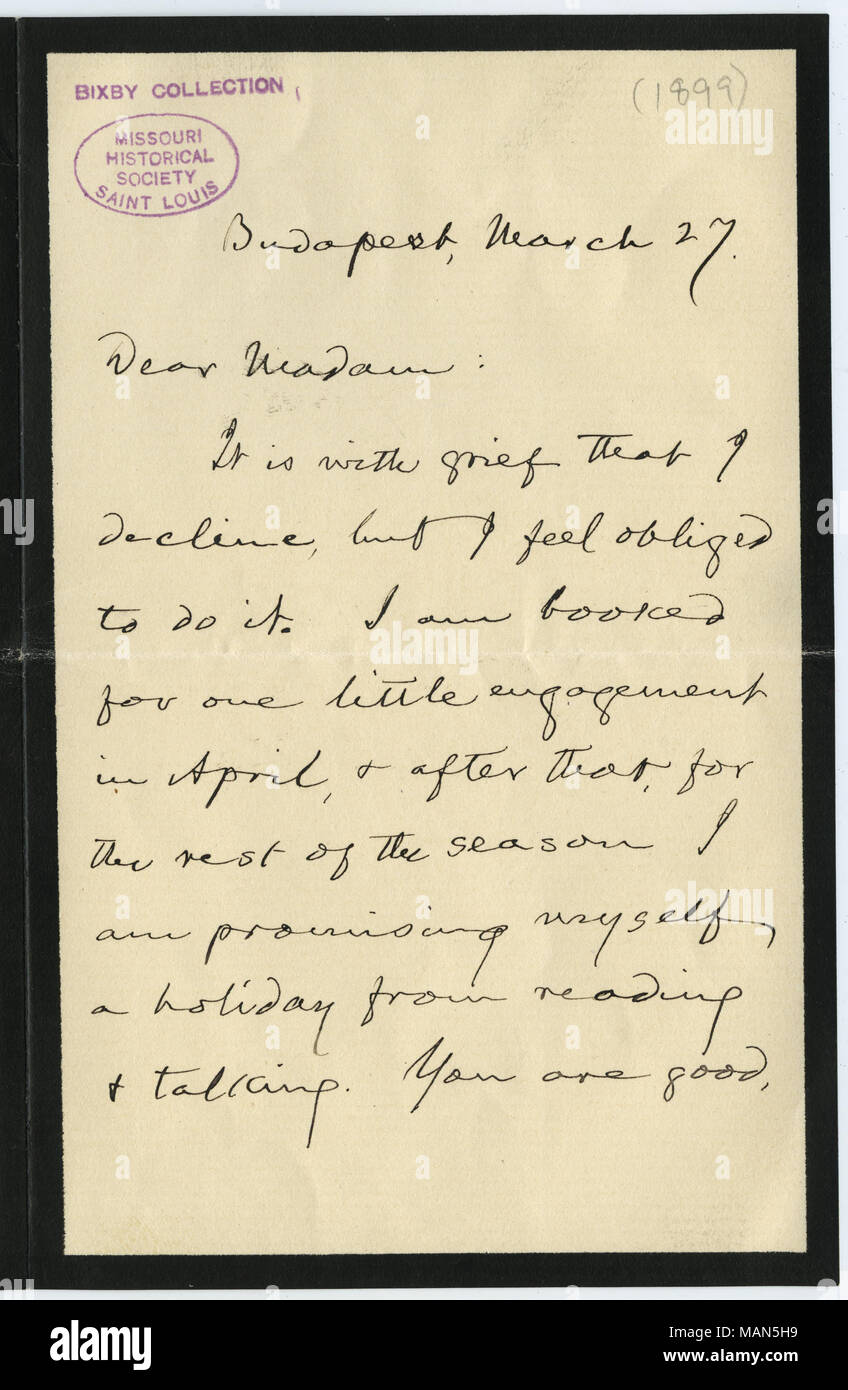 BIXBY COLLECTION
MISSOURI
HISTORICAL
SOCIETY
SAINT LOUIS
(1899)
Budapest, March 27.
Dear Madam:
It is with grief that I
decline, but I feel obliged
to do it. I am booked
for one little engagement
in April, & after that, for
the rest of the season I
am promising myself
a holiday from reading
& talking. You are good,
alamy
Image ID: MAN5H9
www.alamy.com